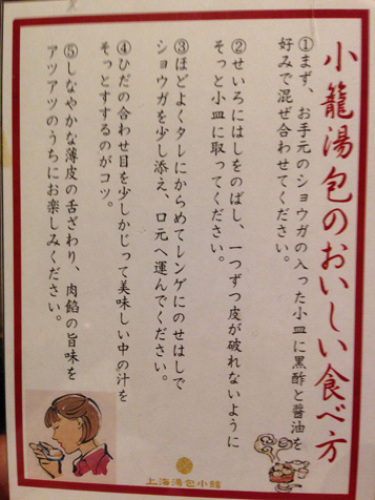 小籠湯包のおいしい食べ方
①まず、お手元のショウガの入った小皿に黒酢と醤油を
好みで混ぜ合わせてください。
②せいろにはしをのばし、一つずつ皮が破れないように
そっと小皿に取ってください。
③ほどよくタレにからめてレンゲにのせはしで
ショウガを少し添え、口元へ運んでください。
④ひだの合わせ目を少しかじって美味しい中の汁を
そっとすするのがコツ。
⑤しなやかな薄皮の舌ざわり、肉餡の旨味を
アツアツのうちにお楽しみください。
上海湯包小館